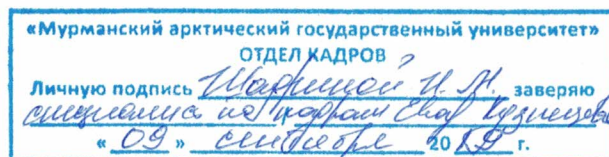 «Мурманский арктический государственный университет»
ОТДЕЛ КАДРОВ
Личную подпись Шадриной И. М. заверяю
специалист по кадрам Кузнецова
« 09 » сентября 2019 г.